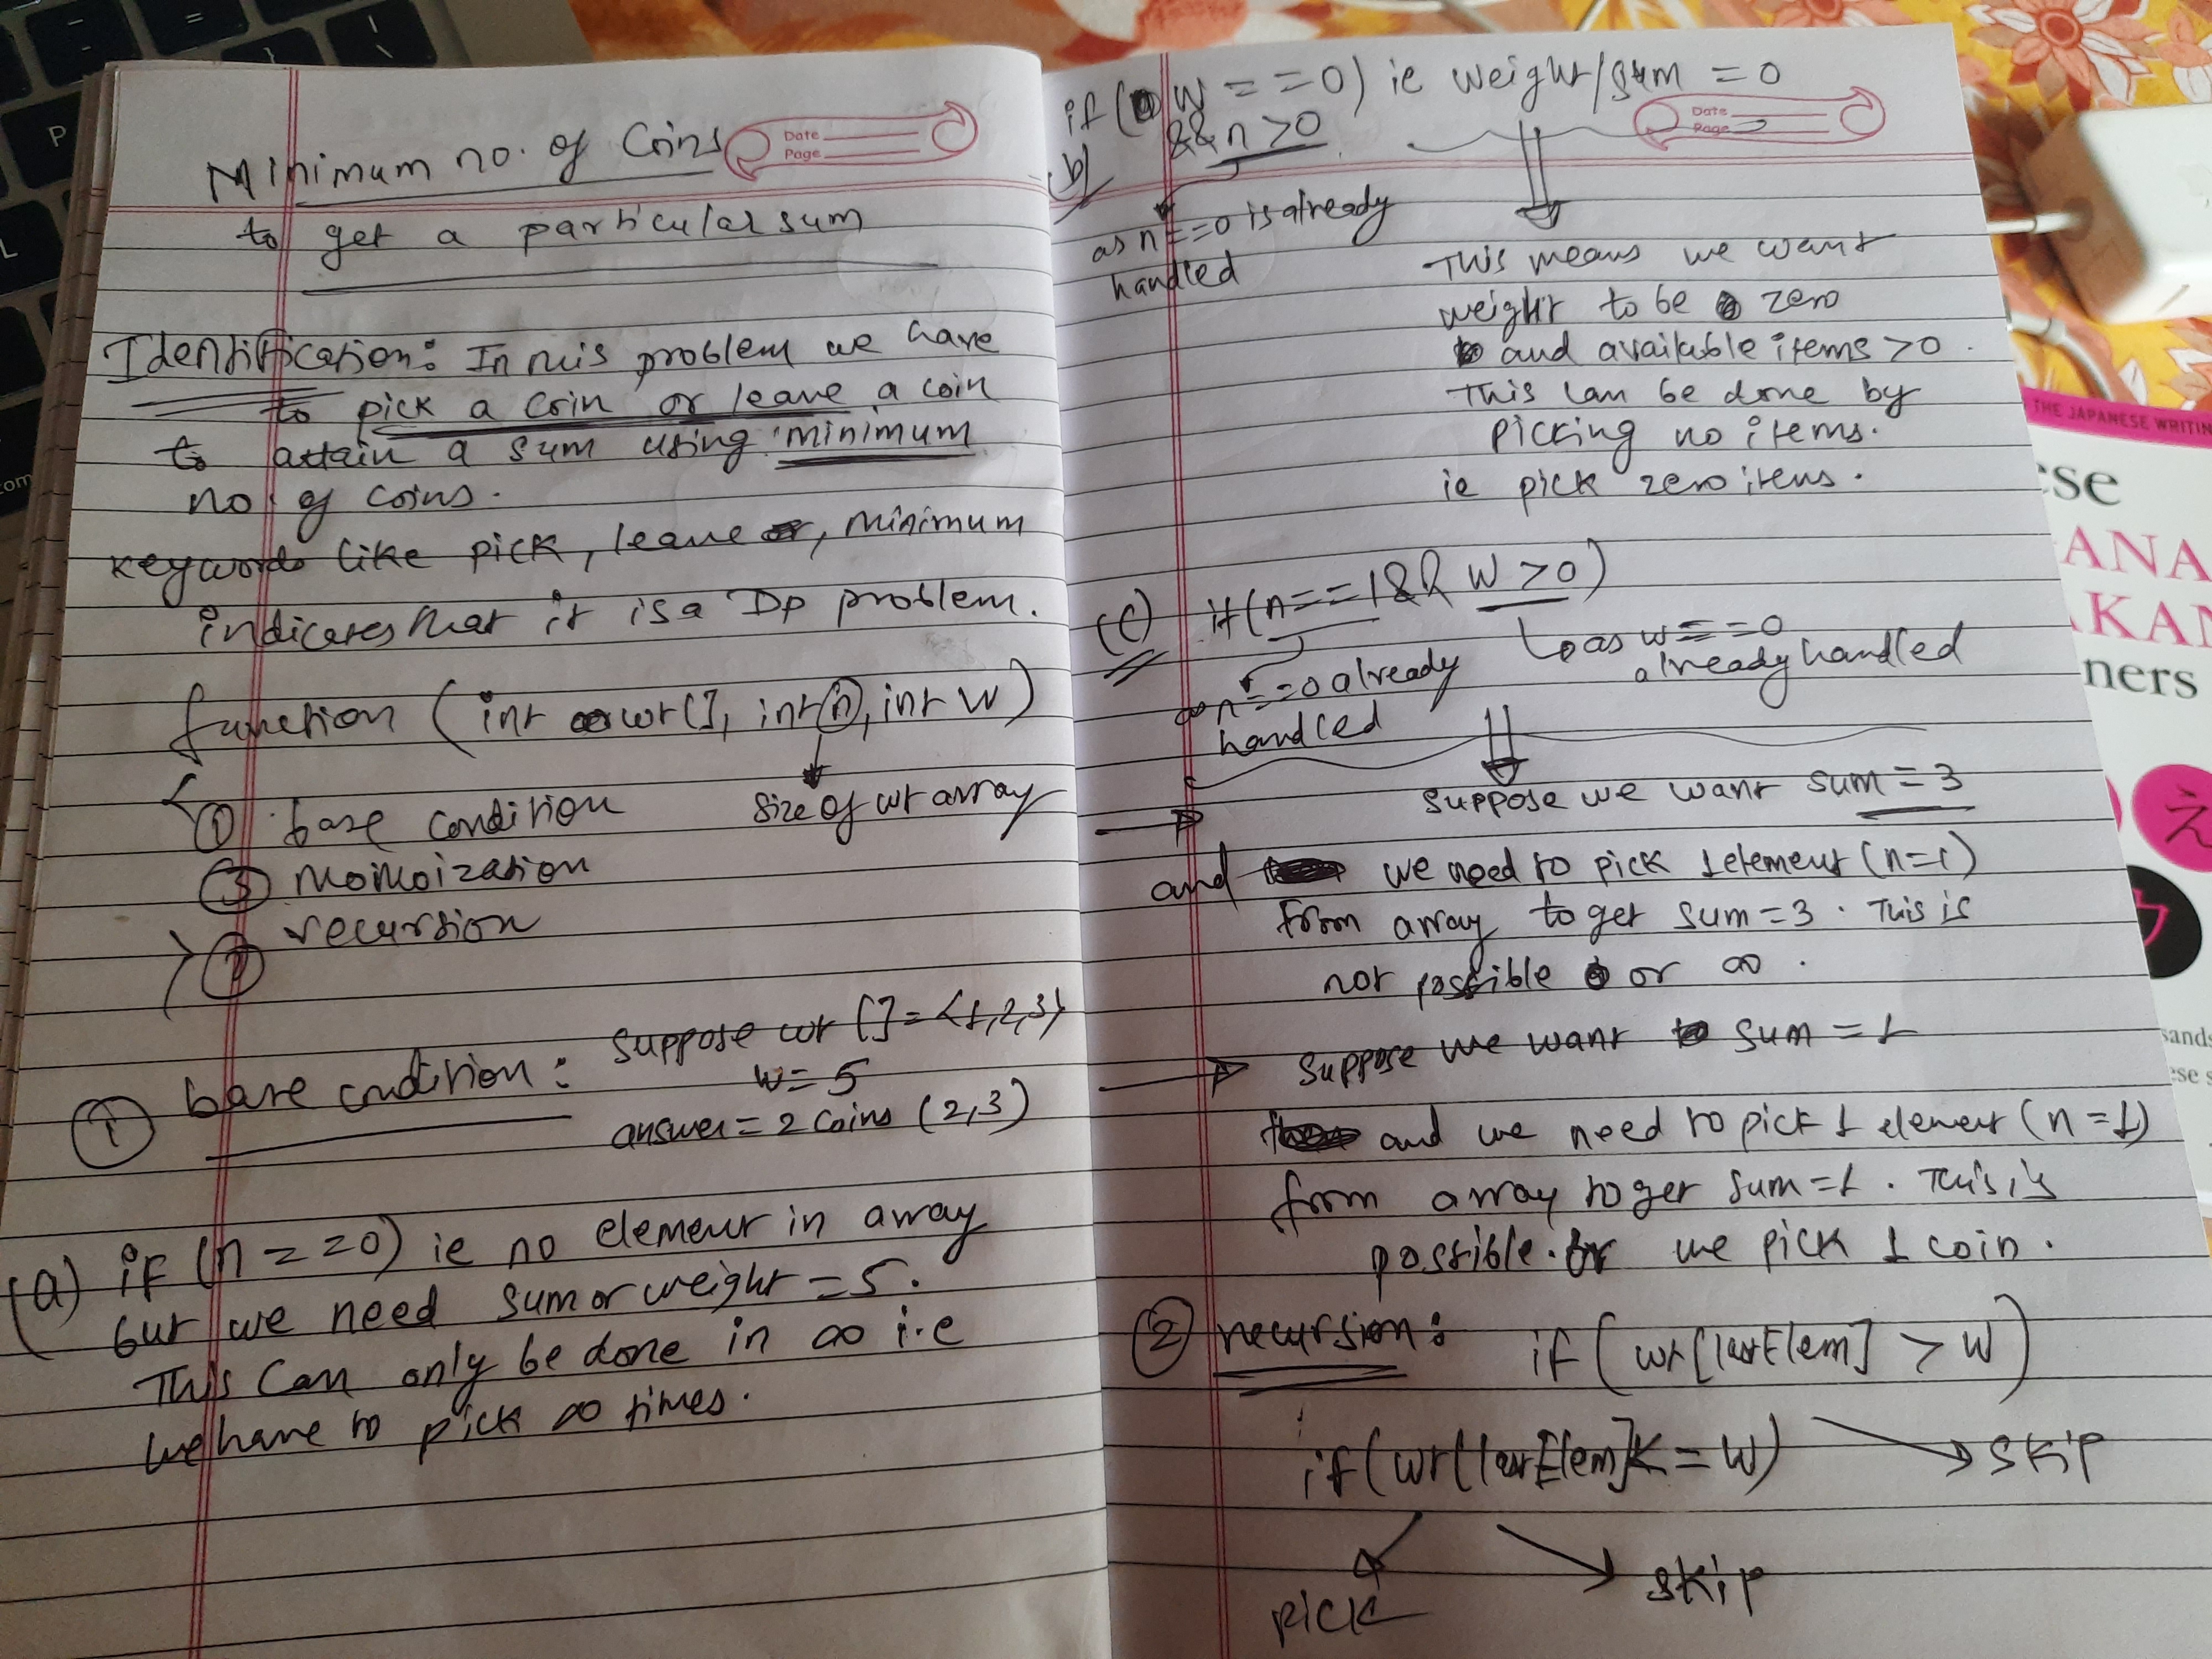 Minimum no. of Coins
Date
Page
to get a particular sum
Identification: In this problem we have
to pick a coin or leave a coin
to attain a sum using minimum
no. of coins.
keywords like pick, leave, minimum
indicates that it is a Dp problem.
function (int wt[], int n, int W)
size of wt array
① base condition
③ momoization
② recursion
① base condition: suppose wt[] = {1,2,3}
W = 5
answer = 2 coins (2,3)
(a) if (n==0) ie no element in array
but we need sum or weight = 5.
This can only be done in ∞ i.e
we have to pick ∞ times.
if (W==0) ie weight/sum = 0
Date
Page
b) && n>0
as n==0 is already
handled
This means we want
weight to be zero
and available items >0.
This can be done by
picking no items.
ie pick zero items.
(c) if (n==1 && W>0)
as W==0
already handled
as n==0 already
handled
suppose we want sum = 3
and we need to pick 1 element (n=1)
from array to get sum=3. This is
not possible or ∞.
suppose we want sum = 1
and we need to pick 1 element (n=1)
from array to get sum=1. This is
possible. we pick 1 coin.
② recursion: if (wt[lastElem] > W)
skip
if (wt[lastElem] <= W)
pick
skip
P
L
com
THE JAPANESE WRITIN
ese
ANA
KAN
ners
え
sands
ese s